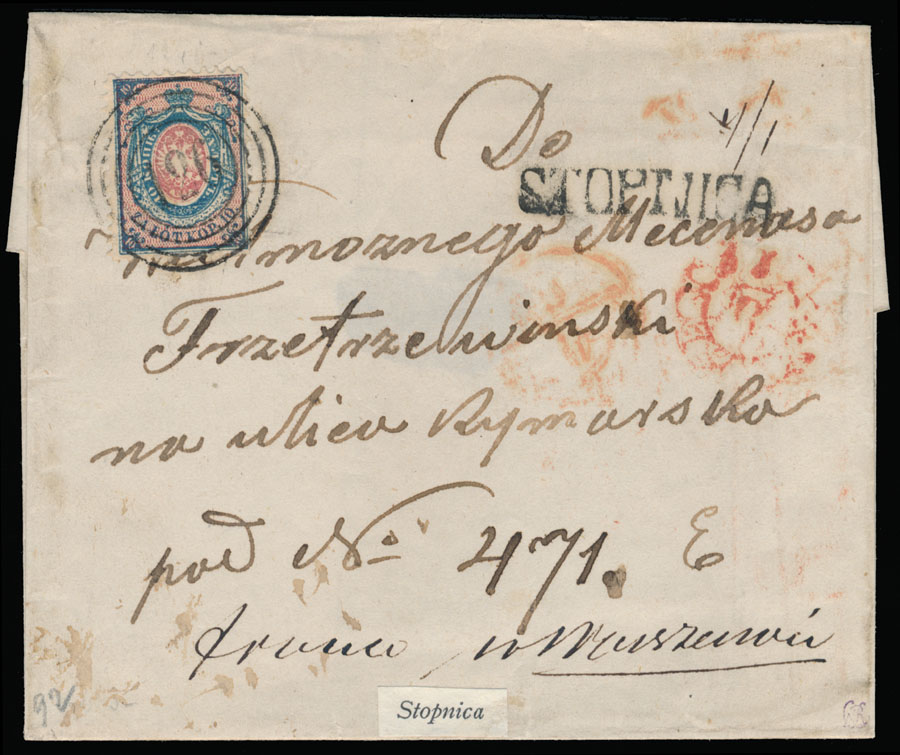 Do
4/1
STOPNICA
Wielmoznego Mecenasa
Trzetrzewinski
na ulica Rymarska
pod No 471. E
franco w Warszawie
92
Stopnica
ZA ŁÓT KOP. 10